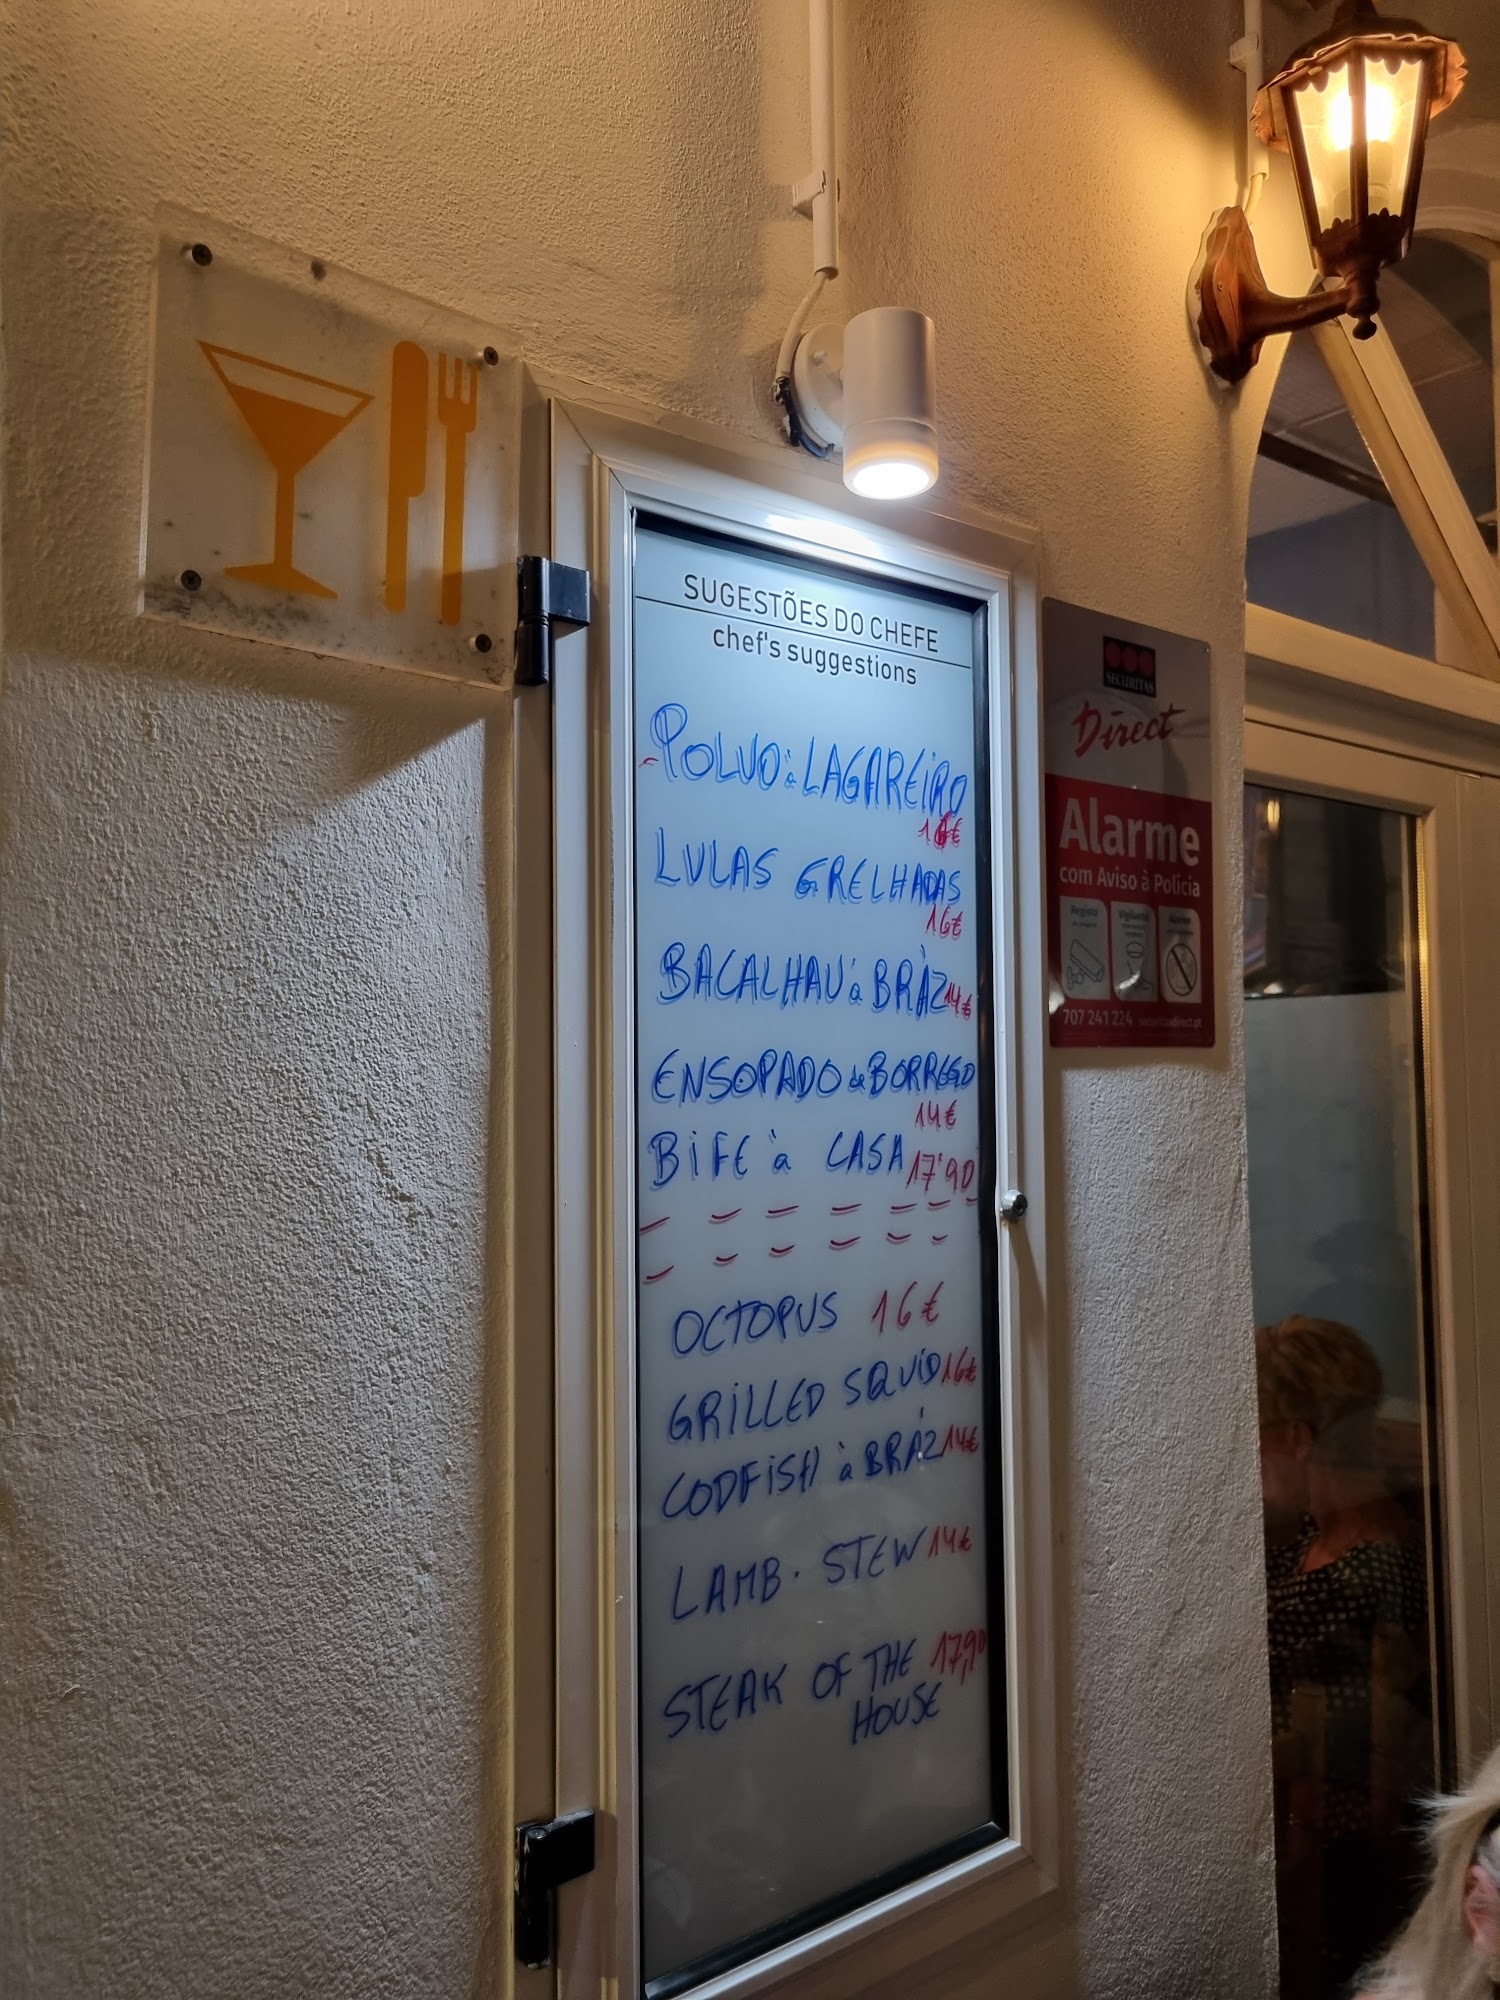 SUGESTÕES DO CHEFE
chef's suggestions
POLVO à LAGAREIRO
16€
LULAS GRELHADAS
16€
BACALHAU à BRÀZ 14€
ENSOPADO de BORREGO
14€
BIFE à CASA 17'90
OCTOPUS 16€
GRILLED SQUID 16€
CODFISH à BRÁZ 14€
LAMB. STEW 14€
STEAK OF THE 17,90
HOUSE
SECURITAS
Direct
Alarme
com Aviso à Polícia
Registo Vigilante
707 241 224 securitasdirect.pt